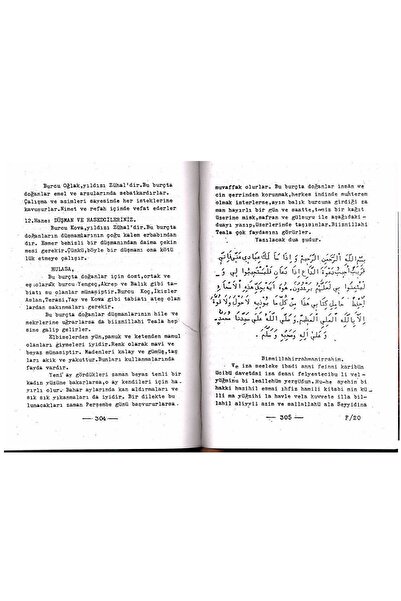 Burcu Oğlak,yıldızı Zühal'dir.Bu burçta
doğanlar emel ve arzularında sebatkardırlar.
Çalışma ve azimleri sayesinde her isteklerine
kavuşurlar.Nimet ve refah içinde vefat ederler
12.Hane: DÜŞMAN VE HASEDCİLERİNİZ,
Burcu Kova,yıldızı Zühal'dir.Bu burçta
doğanların düşmanlarının çoğu kalem erbabından
dır. Esmer benizli bir düşmanından daima çekin
mesi gerekir.Çünkü,böyle bir düşmanı ona kötü
lük etmeye çalışır.
HULASA,
Bu burçta doğanlar için dost,ortak ve
eş olarak burcu Yengeç,Akrep ve Balık gibi ta-
biatı su olanlar münasiptir.Burcu Koç,İkizler
Aslan,Terazi,Yay ve Kova gibi tabiatı ateş olan
lardan sakınmaları gerekir.
Bu burçta doğanlar düşmanlarının hile ve
mekrlerine uğrarlarsa da biiznillahi Teala hep
sine galip gelirler.
Elbiselerden yün,pamuk ve ketenden mamul
olanları giymeleri iyidir.Renk olarak mavi ve
beyaz münasiptir. Madenleri kalay ve gümüş,taş
ları akik ve yakuttur.Bunları kullanmalarında
fayda vardır.
Yeni ay gördükleri zaman beyaz tenli bir
kadın yüzüne bakarlarsa,o ay kendileri için ha-
yırlı olur. Bahar aylarında kan aldırmaları ve
sık sık yıkanmaları da iyidir. Bir dilekte bu
lunacakları zaman Perşembe günü başvururlarsa
— 304 —
muvaffak olurlar. Bu burçta doğanlar insan ve
cin şerrinden korunmak,herkes indinde muhterem
olmak isterlerse,ayın balık burcuna girdiği za
man hayırlı bir gün ve saatte,temiz bir kağıt
üzerine misk,safran ve gülsuyu ile aşağıdaki du
ayı yazıp,üzerlerinde taşısınlar.Biiznillahi
Teala çok faydasını görürler.
Yazılacak dua şudur.
بِسْمِ اللهِ الرَّحْمٰنِ الرَّحِيمِ وَإِذَا سَأَلَكَ عِبَادِي عَنِّي فَإِنِّي
قَرِيبٌ أُجِيبُ دَعْوَةَ الدَّاعِ إِذَا دَعَانِ فَلْيَسْتَجِيبُوا لِي وَ
لْيُؤْمِنُوا بِي لَعَلَّهُمْ يَرْشُدُونَ
إِلَّا بِاللهِ الْعَلِيِّ الْعَظِيمِ وَصَلَّى اللهُ عَلَى سَيِّدِنَا مُحَمَّدٍ
وَعَلَى آلِهِ وَصَحْبِهِ وَسَلَّمَ
Bismillahirrahmanirrahim,
Ve iza seeleke ibadi anni feinni karibün
Ucibü davetdai iza deani felyestecibu li vel-
yü'minu bi leallehüm yerşüdun.
hakki
lli ma yü'zihi la havle vela kuvvete illa bil-
lahil aliyyil azim ve sallallahü ala Seyyidina
— 305 —
F/20